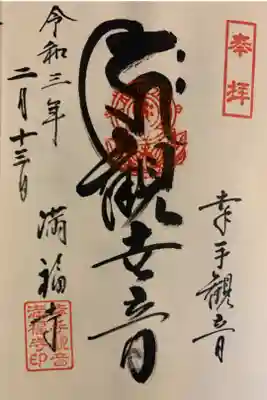 奉拝
幸手觀音
觀世音
満福寺
令和三年
二月十三日
幸手観音
満福寺印